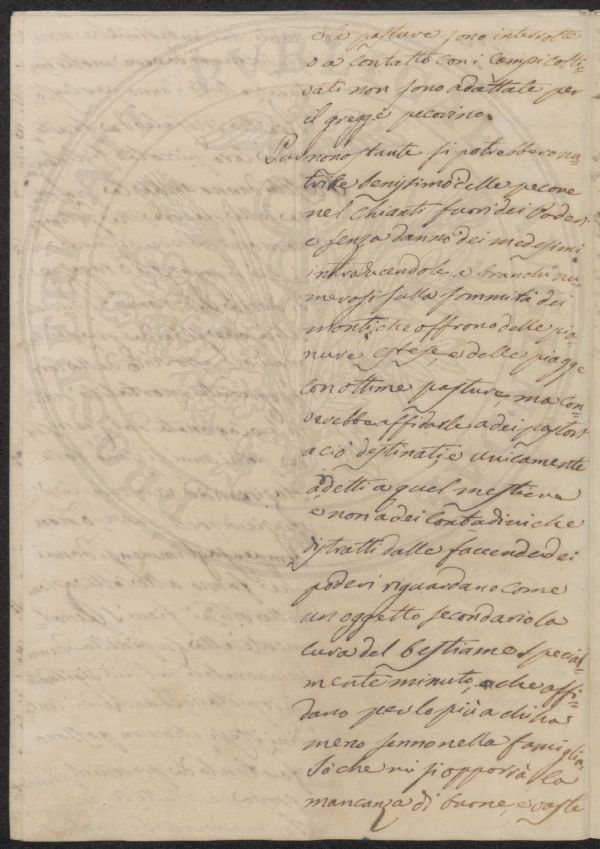 che pasture sono interrotte
o a contatto con i Campi colti-
vati non sono adattate per
il gregge pecorino.
Pur nonostante si potrebbero nu-
trire benissimo delle pecore
nel Chianti fuori dei Poderi
e senza danno dei medesimi
introducendole a branchi nu-
merosi sulla sommità dei
monti che offrono delle pia-
nure estese, e delle piagge
con ottime pasture, ma con-
verrebbe affidarle a dei pastori
a ciò destinati, e unicamente
adetti a quel mestiere
e non a dei Contadini che
distratti dalle faccende dei
poderi riguardano come
un oggetto secondario la
cura del bestiame special-
mente minuto, e che affi-
dano per lo più a chi ha
meno senno nella famiglia,
Sò che mi si opporrà la
mancanza di buone, e vaste